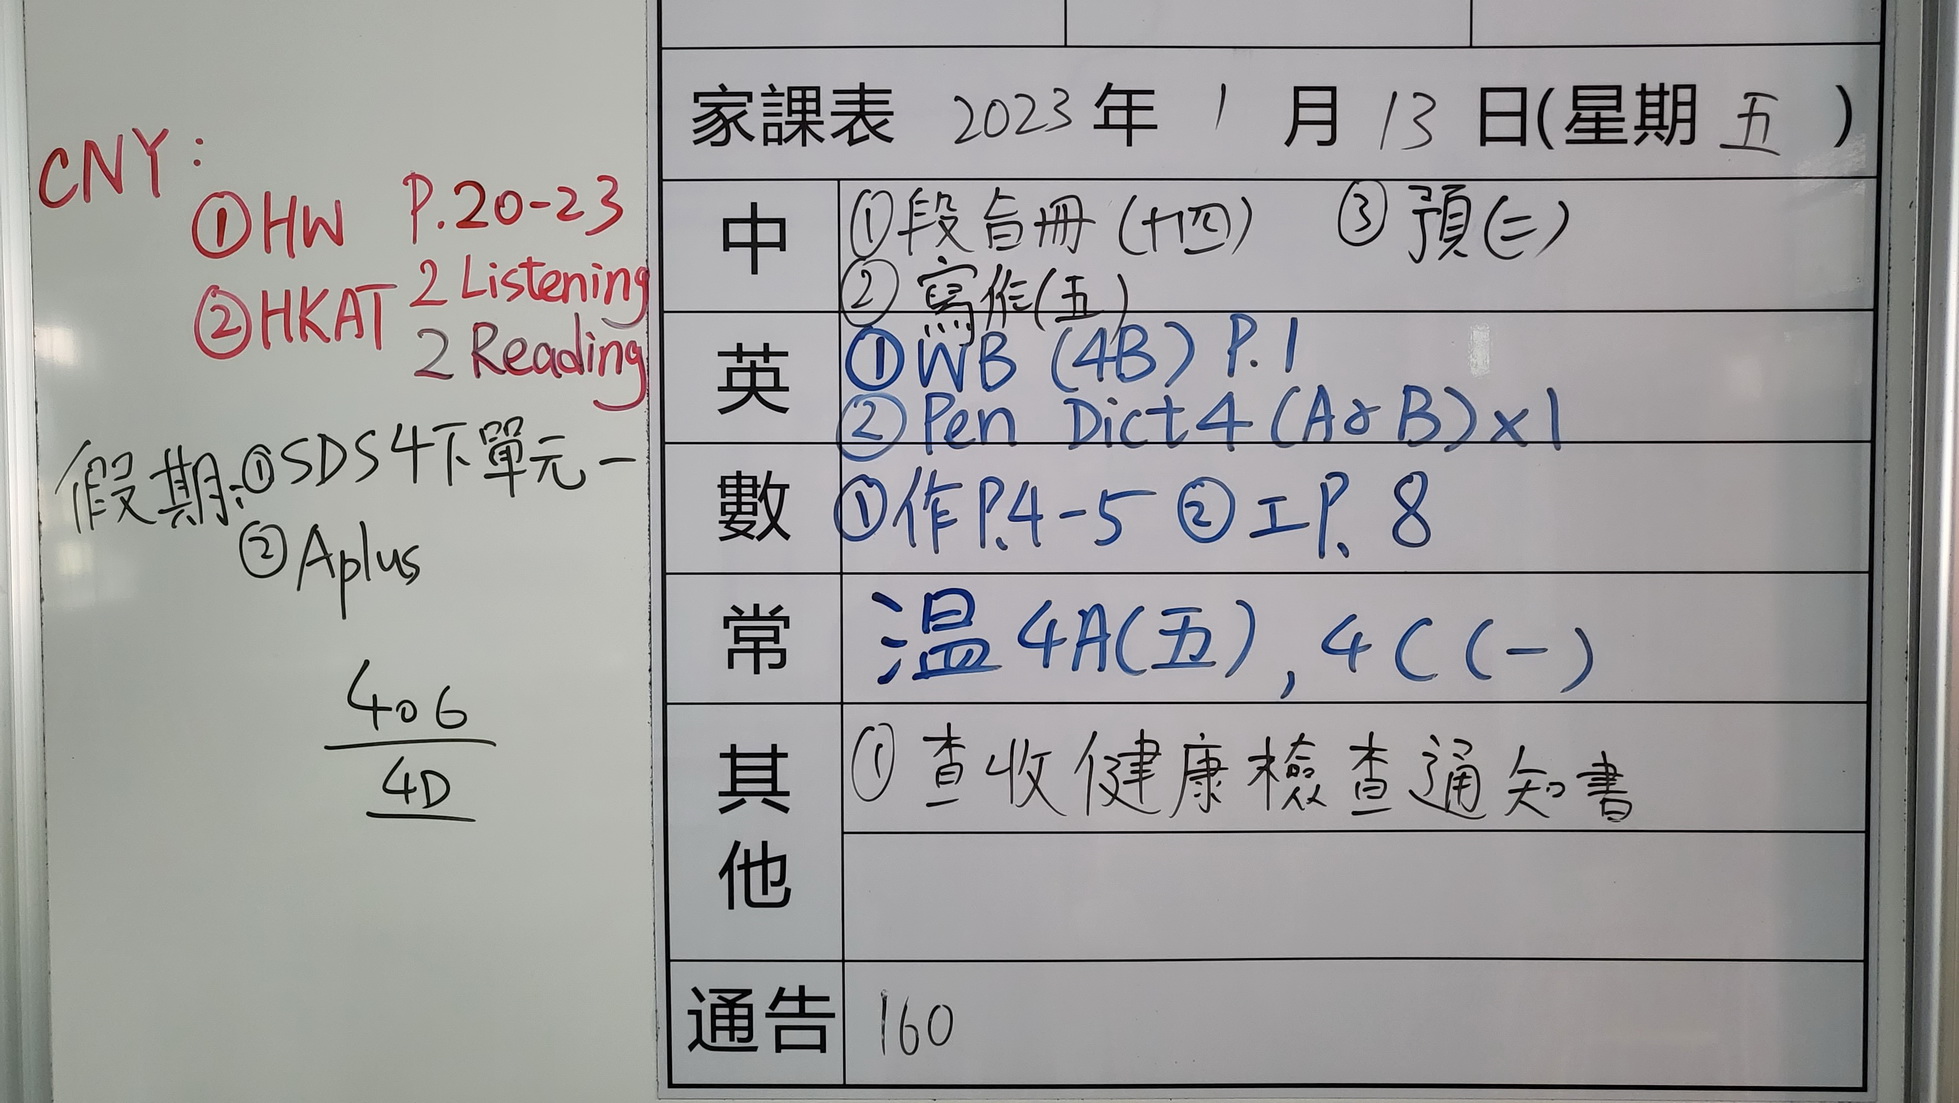 CNY:
①HW P.20-23
②HKAT 2 Listening
2 Reading
假期:①SDS4下單元一
②Aplus
406
4D
家課表 2023年 1 月 13 日(星期 五 )
中
①段自冊(十四) ③預(二)
②寫作(五)
英
①WB (4B) P.1
②Pen Dict 4 (A&B)x1
數
①作P.4-5 ②工P. 8
常
温 4A(五), 4C(一)
其他
①查收健康檢查通知書
通告 160